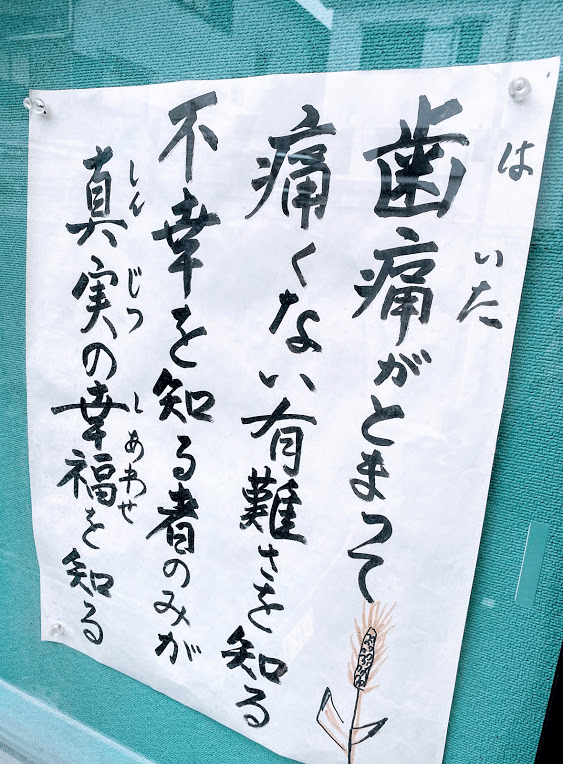 歯痛がとまって
はいた
痛くない有難さを知る
不幸を知る者のみが
真実の幸福を知る
しんじつ しあわせ